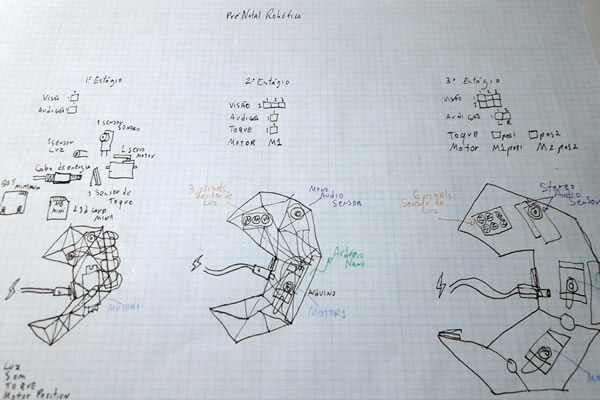 Pre Natal Robótico
1º Estágio
Visão 1
Audição 1
1 sensor
sonoro
1 sensor
Luz
1 servo
motor
Cabo de energia
1 Sensor de
Toque
1 sd card
mini
MOTOR1
Luz
Som
TOQUE
Motor Position
2º Estágio
1 2 3
VISÃO 1
Audição 1
Toque 1
MOTOR M1
3 pixels
Sensor de
Luz
Mono
Audio
SENSOR
Arduino
Nano
Arduino
MOTOR1
3º Estágio
1 2 3
Visão 1
Audição
L R
Toque pos1 pos2
Motor M1pos1 M2 pos2
6 pixels
Sensor de
Luz
Stereo
Audio
Sensor